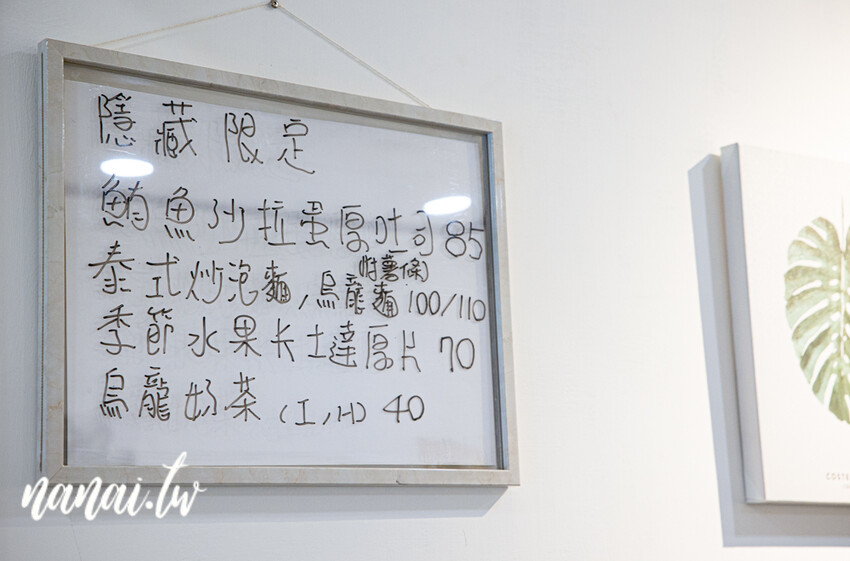 隱藏限定
鮪魚沙拉蛋厚吐司 85
(附薯條)
泰式炒泡麵/烏龍麵 100/110
季節水果卡士達厚片 70
烏龍奶茶 (I/H) 40
nanai.tw
COSTE